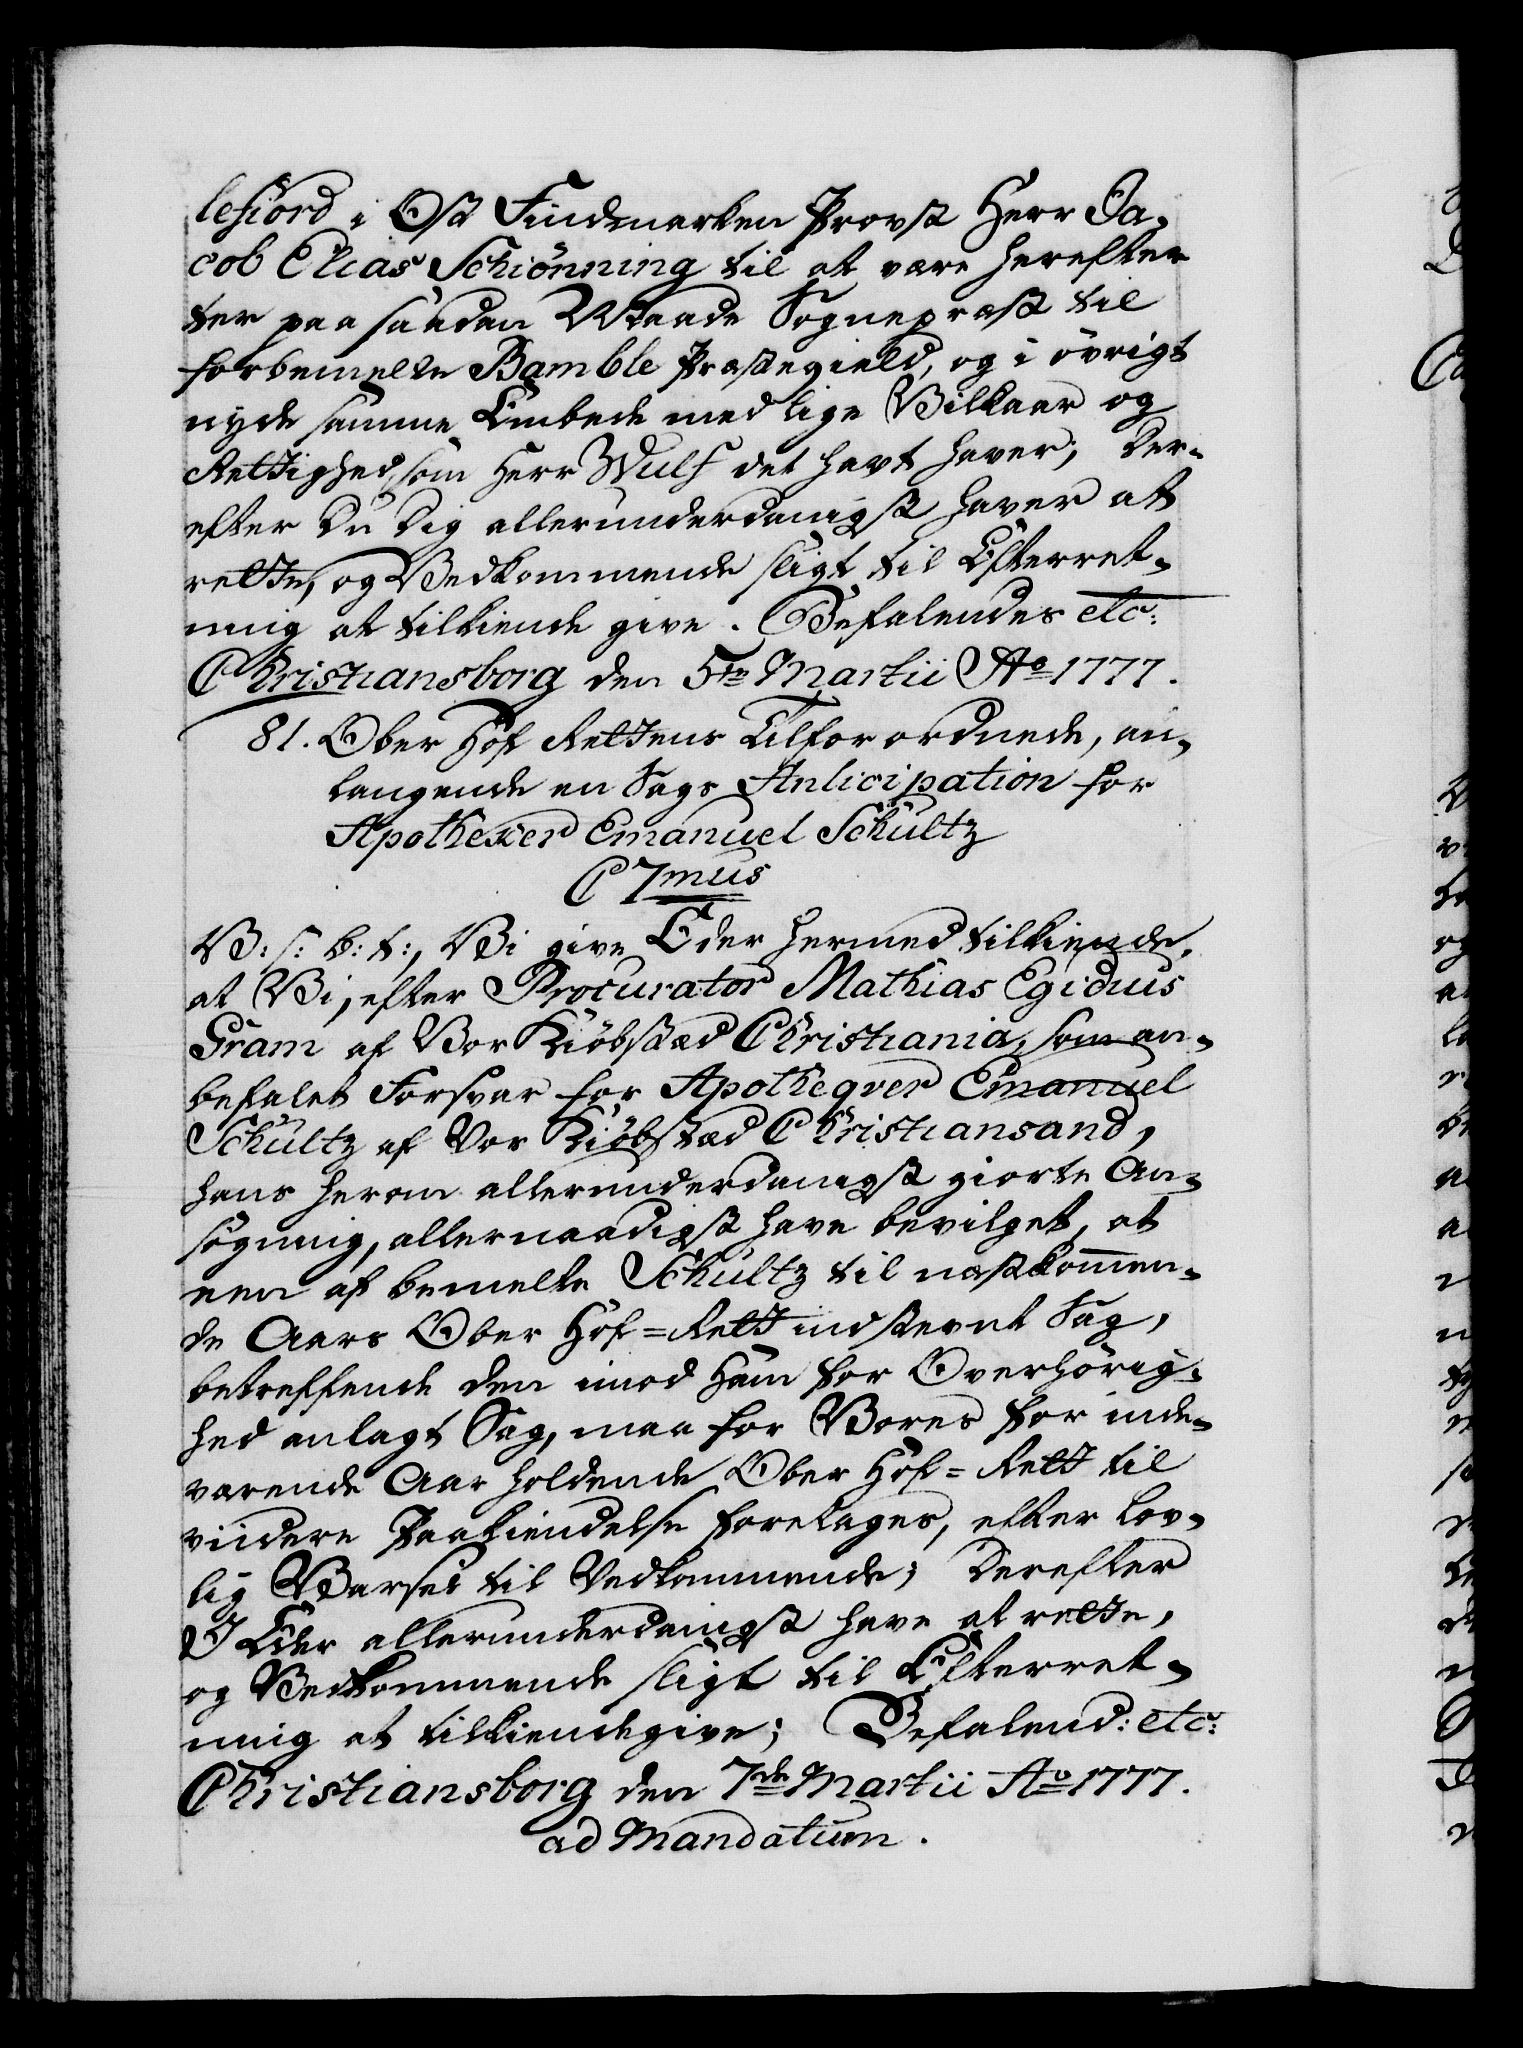 lefiord i Øst Findmarken Provst Herr Ja-
cob Elias Schiönning til at være herefter
ter paa saadan Maade Sognepræst til
forbemelte Bamble Præstegield, og i övrigt
nyde samme Embede med lige Vilkaar og
Rettighed, som Herr Wulf det havt haver; Der-
efter Du Dig allerunderdanigst haver at
rette, og Vedkommende sligt til Efterret-
ning at tilkiende give. Befalendes etc:
Christiansborg den 5te Martii Ao 1777.
81. Ober Hof Rettens Tilforordnede, an-
langende en Sags Anticipation for
Apotheker Emanuel Schultz
C 7mus
V: s: b: t:, Vi give Eder hermed tilkiende,
at Vi, efter Procurator Mathias Egidius
Gram af Vor Kiöbstæd Christiania, som an-
befalet Forsvar for Apotheqver Emanuel
Schultz af Vor Kiöbstæd Christiansand,
hans herom allerunderdanigst giorte An-
søgning, allernaadigst have bevilget, at
een af bemelte Schultz til næstkommen-
de Aars Ober Hof=Rett indstevnt Sag,
betreffende den imod Ham for Overhörig-
hed anlagt Sag, maa for Vores for inde-
værende Aar holdende Ober Hof=Rett til
viidere Paakiendelse foretages, efter lov-
lig Varsel til Vedkommende; Derefter
I Eder allerunderdanigst have at rette,
og Vedkommende sligt til Efterret-
ning at tilkiendegive; Befalend: etc:
Christiansborg den 7de Martii Ao 1777.
ad Mandatum.